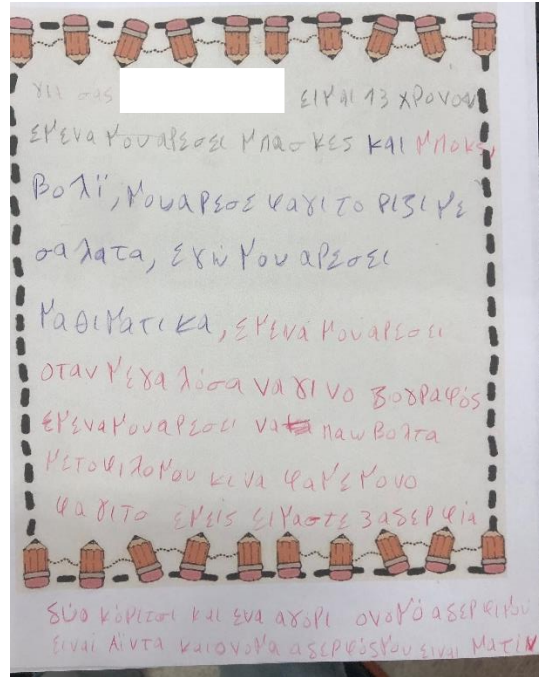 γεια σας ειμαι 13 χρονον
εμενα μου αρεσει μπασκες και μποκς,
βολϊ, μου αρεσε φαγιτο ριζι με
σαλατα, εγω μου αρεσει
μαθιματικα, εμενα μου αρεσει
οταν μεγαλόσα να γινο ζογραφός
εμενα μου αρεσει να παω βολτα
με το φιλο μου κι να φαμε μονο
φαγιτο εμεις ειμαστε 3 αδερφια
δύο κόριτσι και ενα αγορι ονομό αδερφιμου
ειναι Αϊντα και ονομα αδερφόςμου ειναι Ματιν